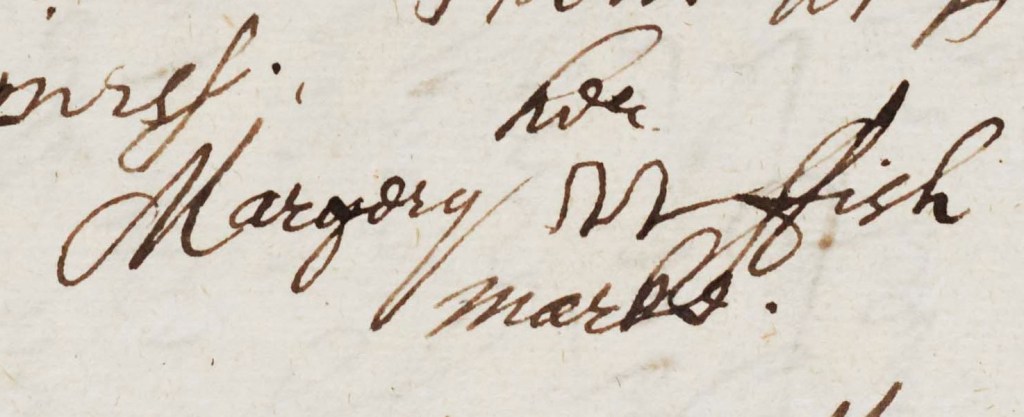 her
Margery ffish
marke.